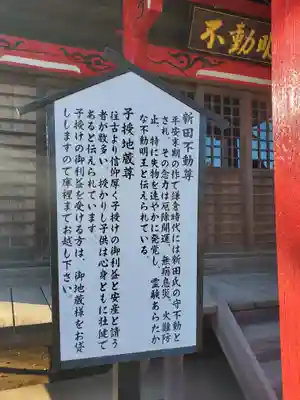 不動明
新田不動尊
年安末期の作で鎌倉時代には新田氏の守不動と
され、その念力は厄除開運、無病息災、火難防
止、特に失物を速やかに発覚し、霊験あらたか
な不動明王と伝えられている。
子授地蔵尊
往古より信仰厚く子授けの御利益と安産と請う
者が数多い、授かりし子供は心身ともに壮健で
あると伝えられています。
子授けの御利益を受ける方は、御地蔵様をお貸
ししますので庫裡までお越し下さい。